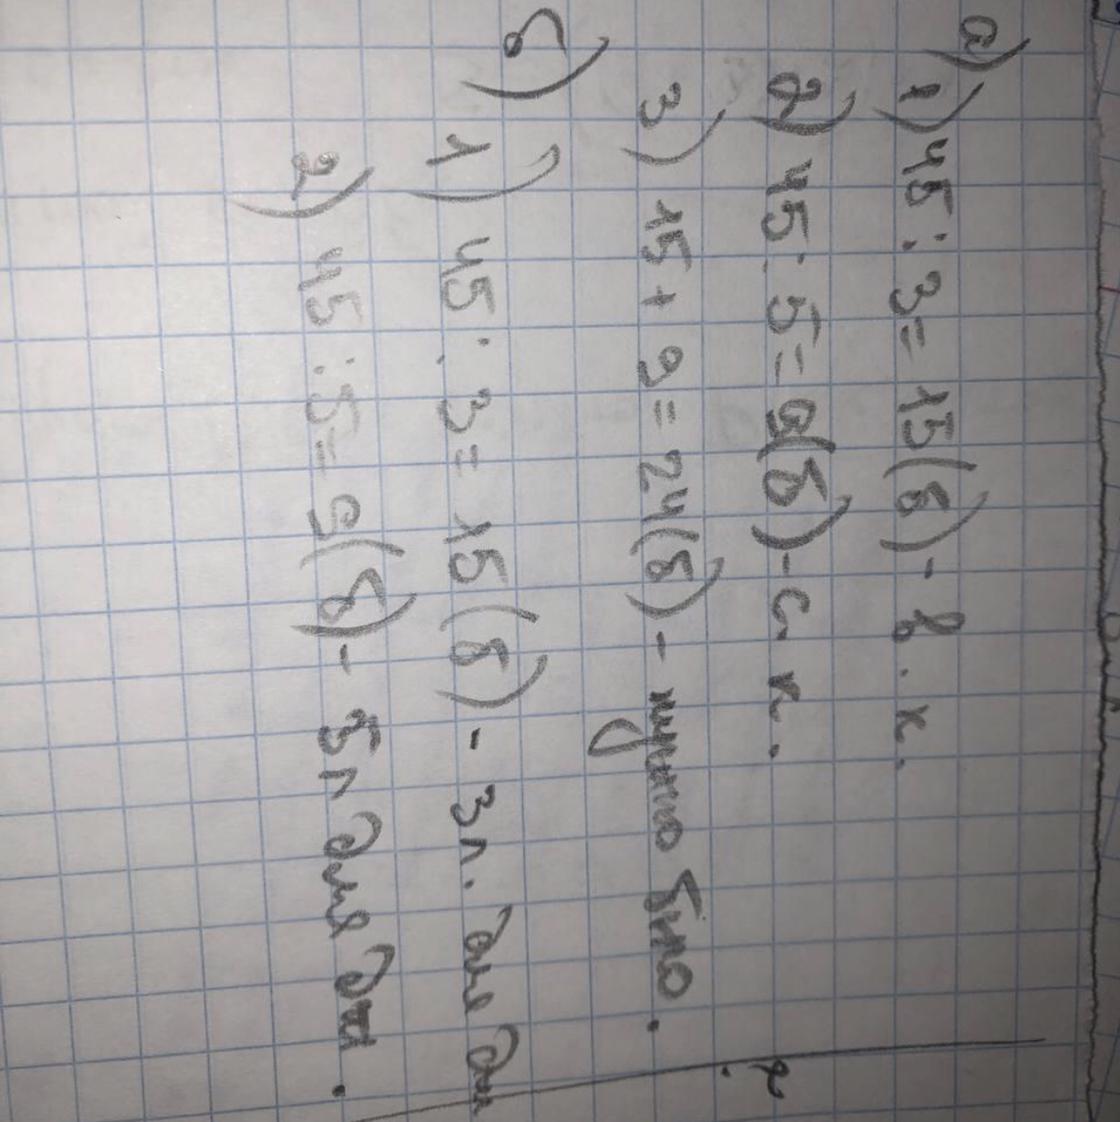 а) 1) 45 : 3 = 15 (б) - в. к.
2) 45 : 5 = 9 (б) - с. к.
3) 15 + 9 = 24 (б) - нужно было.
б) 1) 45 : 3 = 15 (б) - 3 л. для
2) 45 : 5 = 9 (б) - 5 л для